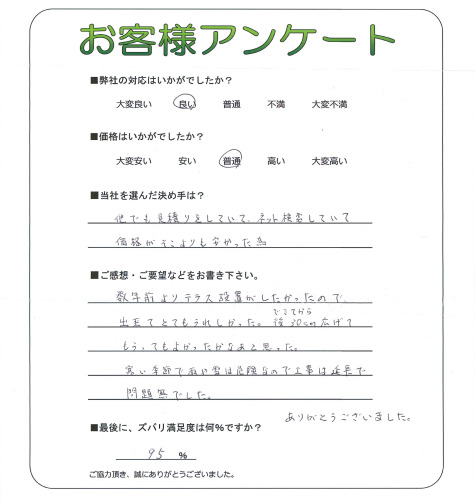 お客様アンケート
■弊社の対応はいかがでしたか？
大変良い　良い　普通　不満　大変不満
■価格はいかがでしたか？
大変安い　安い　普通　高い　大変高い
■当社を選んだ決め手は？
他でも見積りをしていて、ネット検索していて
価格がそこよりも安かった為
■ご感想・ご要望などをお書き下さい。
数年前よりテラス設置がしたかったので、
出来てとてもうれしかった。できてから後30cm広げて
もらってもよかったかなあと思った。
寒い季節で雨や雪は危険なので工事は延長で
問題無でした。
ありがとうございました。
■最後に、ズバリ満足度は何％ですか？
95 ％
ご協力頂き、誠にありがとうございました。